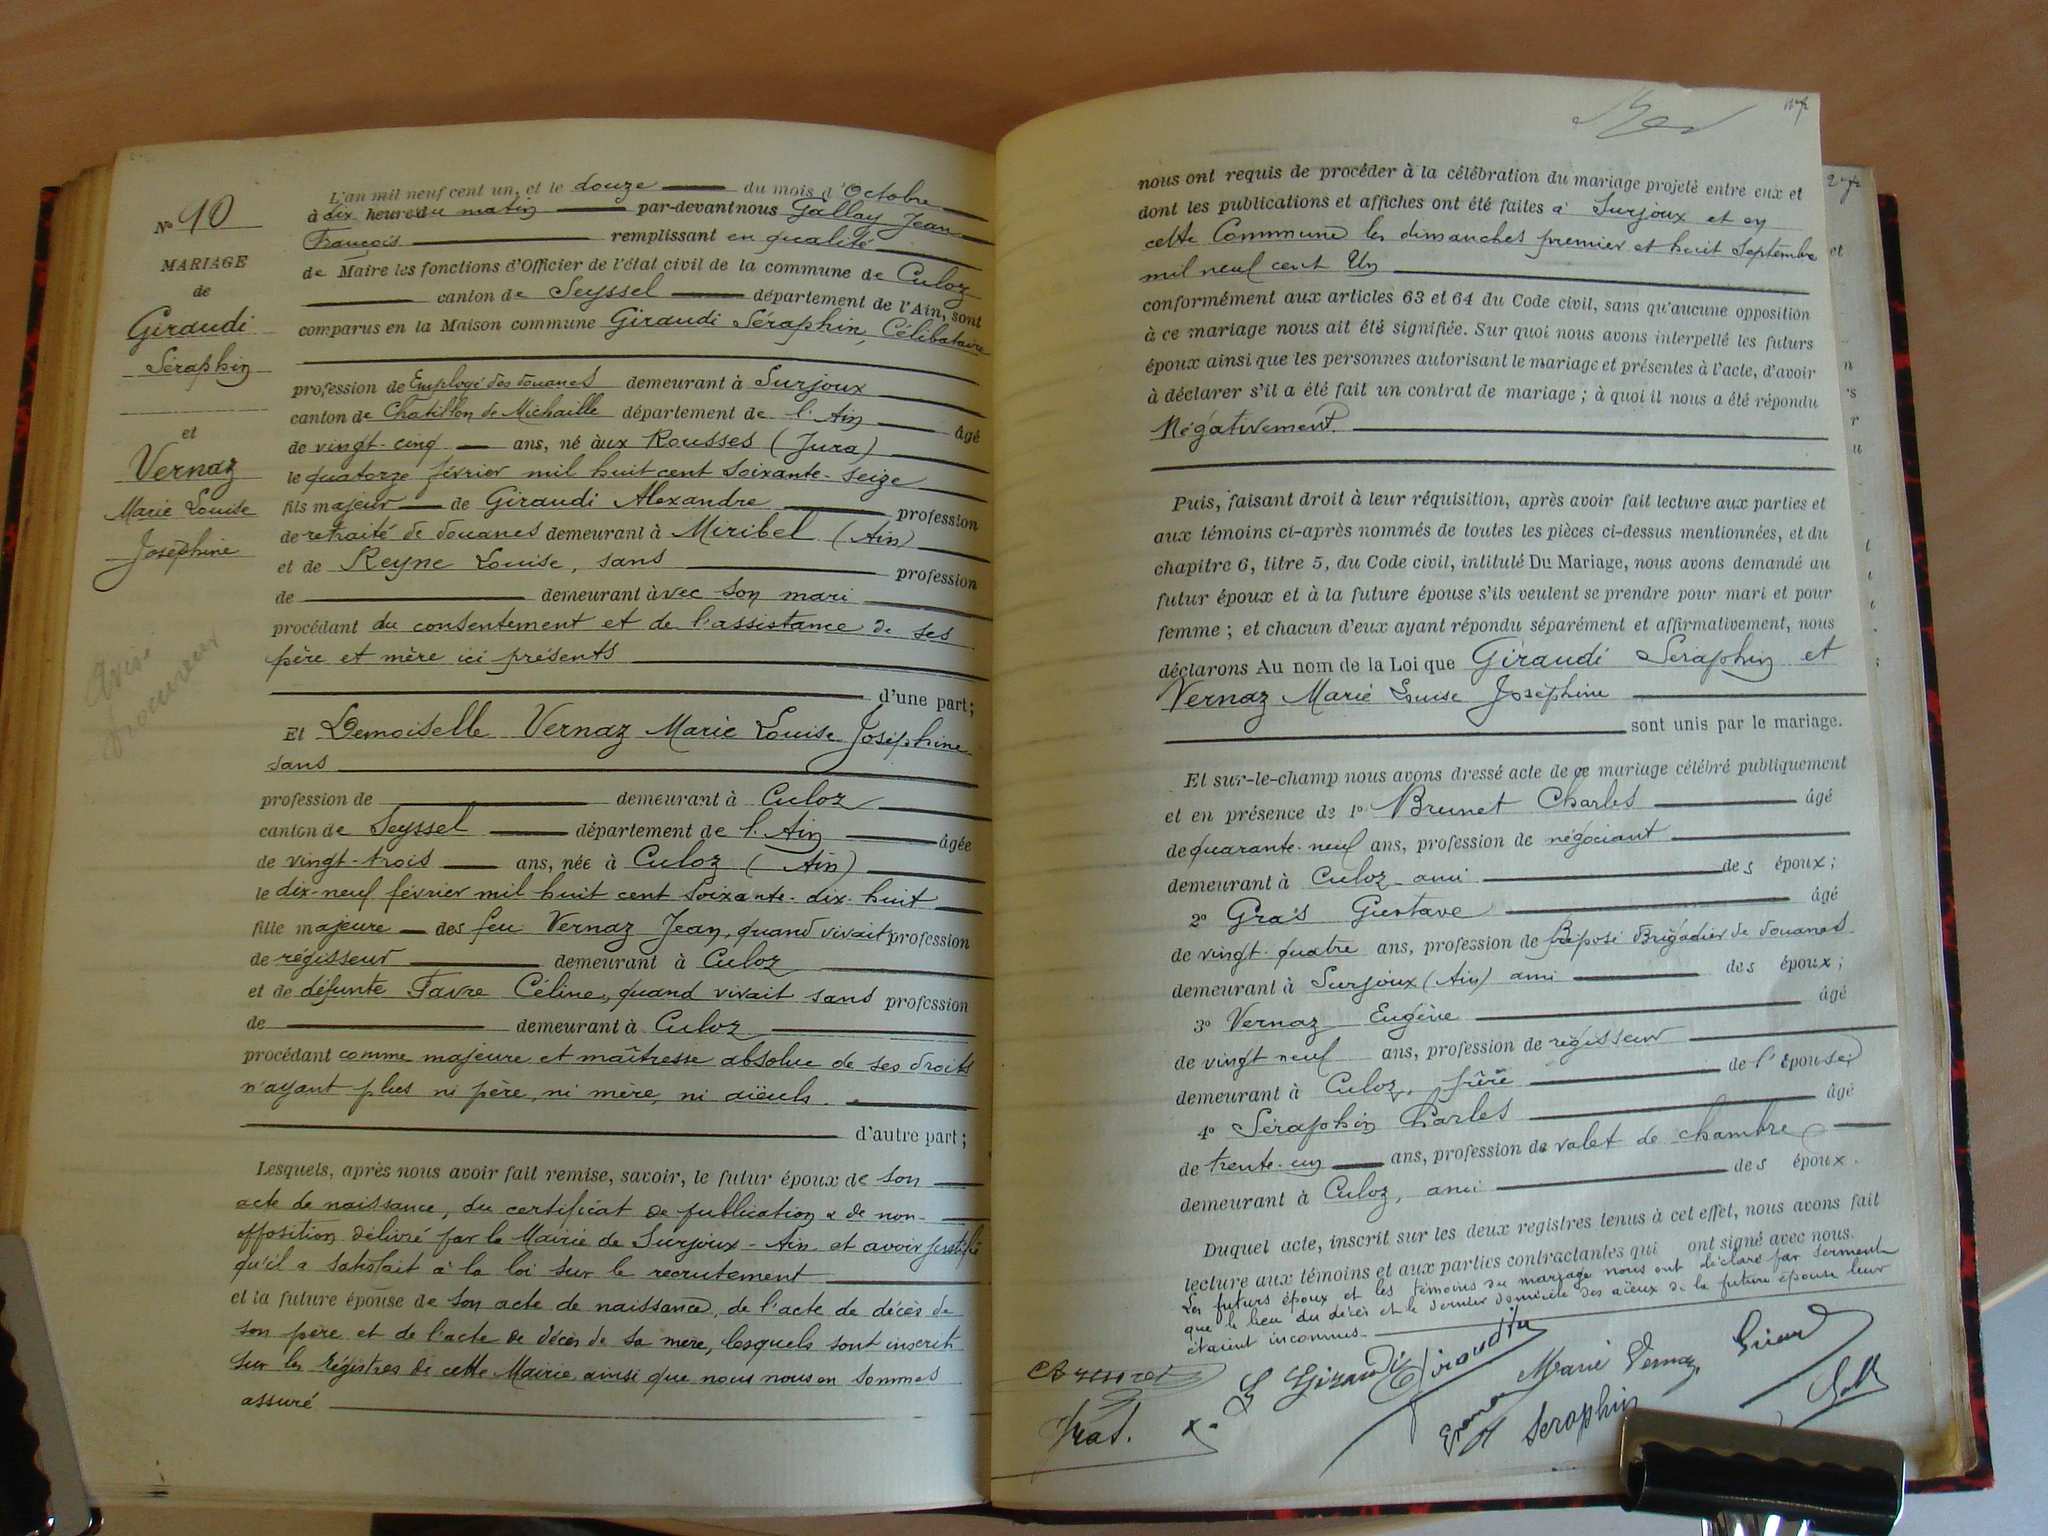 N° 10
MARIAGE
de
Giraudi
Séraphin
et
Vernaz
Marie Louise
Joséphine
L'an mil neuf cent un, et le douze du mois d'Octobre
à dix heures du matin par-devant nous Gallay Jean
François remplissant en qualité
de Maire les fonctions d'Officier de l'état civil de la commune de Culoz
canton de Seyssel département de l'Ain, sont
comparus en la Maison commune Giraudi Séraphin, Célibataire
profession de Employé des douanes demeurant à Surjoux
canton de Chatillon de Michaille département de l'Ain âgé
de vingt-cinq ans, né aux Rousses (Jura)
le quatorze février mil huit cent soixante-seize
fils majeur de Giraudi Alexandre profession
de retraité de douanes demeurant à Miribel (Ain)
et de Reyne Louise, sans profession
de demeurant avec son mari
procédant du consentement et de l'assistance de ses
père et mère ici présents
d'une part;
Et Demoiselle Vernaz Marie Louise Joséphine
sans
profession de demeurant à Culoz
canton de Seyssel département de l'Ain âgée
de vingt-trois ans, née à Culoz (Ain)
le dix-neuf février mil huit cent soixante-dix-huit
fille majeure des feu Vernaz Jean, quand vivait profession
de régisseur demeurant à Culoz
et de défunte Favre Céline, quand vivait sans profession
de demeurant à Culoz
procédant comme majeure et maîtresse absolue de ses droits
n'ayant plus ni père, ni mère, ni aïeuls.
d'autre part;
Lesquels, après nous avoir fait remise, savoir, le futur époux de son
acte de naissance, du certificat de publication & de non-
opposition délivré par la Mairie de Surjoux - Ain et avoir justifié
qu'il a satisfait à la loi sur le recrutement
et la future épouse de son acte de naissance, de l'acte de décès de
son père et de l'acte de décès de sa mère, lesquels sont inscrit
sur les régistres de cette Mairie ainsi que nous nous en sommes
assuré
nous ont requis de procéder à la célébration du mariage projeté entre eux et
dont les publications et affiches ont été faites à Surjoux et en
cette Commune les dimanches premier et huit Septembre
mil neuf cent Un
conformément aux articles 63 et 64 du Code civil, sans qu'aucune opposition
à ce mariage nous ait été signifiée. Sur quoi nous avons interpellé les futurs
époux ainsi que les personnes autorisant le mariage et présentes à l'acte, d'avoir
à déclarer s'il a été fait un contrat de mariage; à quoi il nous a été répondu
Négativement.
Puis, faisant droit à leur réquisition, après avoir fait lecture aux parties et
aux témoins ci-après nommés de toutes les pièces ci-dessus mentionnées, et du
chapitre 6, titre 5, du Code civil, intitulé Du Mariage, nous avons demandé au
futur époux et à la future épouse s'ils veulent se prendre pour mari et pour
femme; et chacun d'eux ayant répondu séparément et affirmativement, nous
déclarons Au nom de la Loi que Giraudi Séraphin et
Vernaz Marie Louise Joséphine
sont unis par le mariage.
Et sur-le-champ nous avons dressé acte de ce mariage célébré publiquement
et en présence de 1° Brunet Charles âgé
de quarante-neuf ans, profession de négociant
demeurant à Culoz ami des époux;
2° Gras Gustave âgé
de vingt-quatre ans, profession de préposé Brigadier de douanes
demeurant à Surjoux (Ain) ami des époux;
3° Vernaz Eugène âgé
de vingt neuf ans, profession de régisseur
demeurant à Culoz, frère de l'épouse;
4° Séraphin Charles âgé
de trente-un ans, profession de valet de chambre
demeurant à Culoz, ami des époux.
Duquel acte, inscrit sur les deux registres tenus à cet effet, nous avons fait
lecture aux témoins et aux parties contractantes qui ont signé avec nous.
Les futurs époux et les témoins du mariage nous ont déclaré par serment
que le lieu du décès et le dernier domicile des aïeux de la future épouse leur
étaient inconnus.
S Giraudi Marie Vernaz
Gras. Séraphin